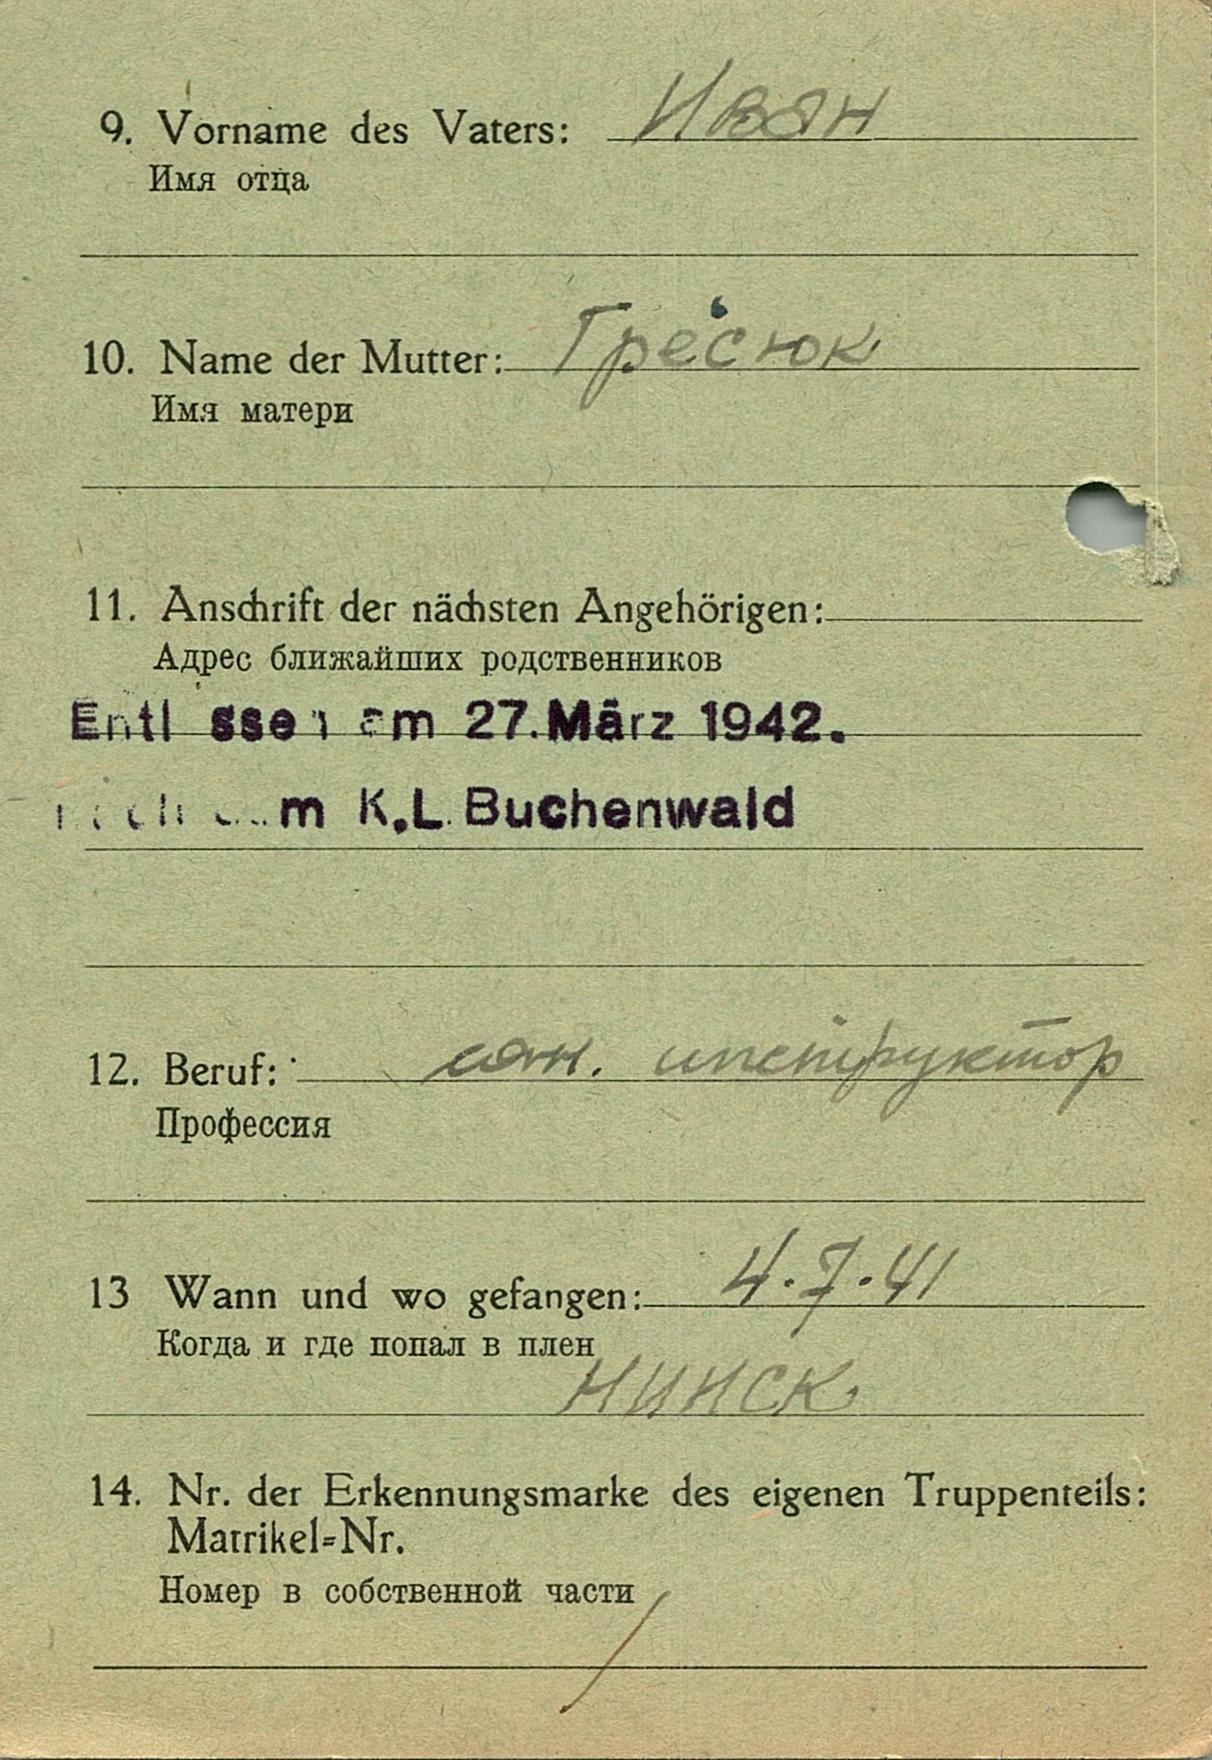 9. Vorname des Vaters: Иван
Имя отца
10. Name der Mutter: Гресюк
Имя матери
11. Anschrift der nächsten Angehörigen:
Адрес ближайших родственников
Entl sse am 27. März 1942.
m K.L. Buchenwald
12. Beruf: сан. инструктор
Профессия
13 Wann und wo gefangen: 4.7.41
Когда и где попал в плен
Нинск
14. Nr. der Erkennungsmarke des eigenen Truppenteils:
Matrikel=Nr.
Номер в собственной части